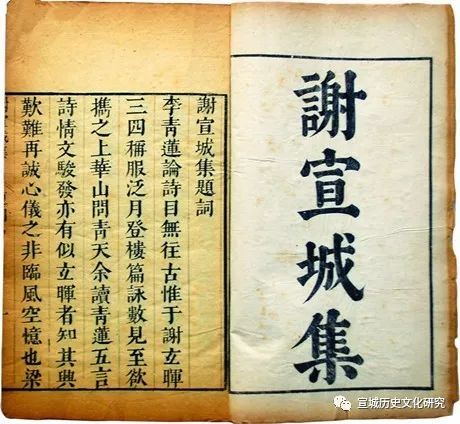 謝宣城集
謝宣城集題詞
李青蓮論詩目無往古惟于謝玄暉
三四稱服泛月登樓篇詠數見至欲
攜之上華山問青天余讀青蓮五言
詩情文駿發亦有似玄暉者知其興
歎難再誠心儀之非臨風空憶也梁
宣城历史文化研究